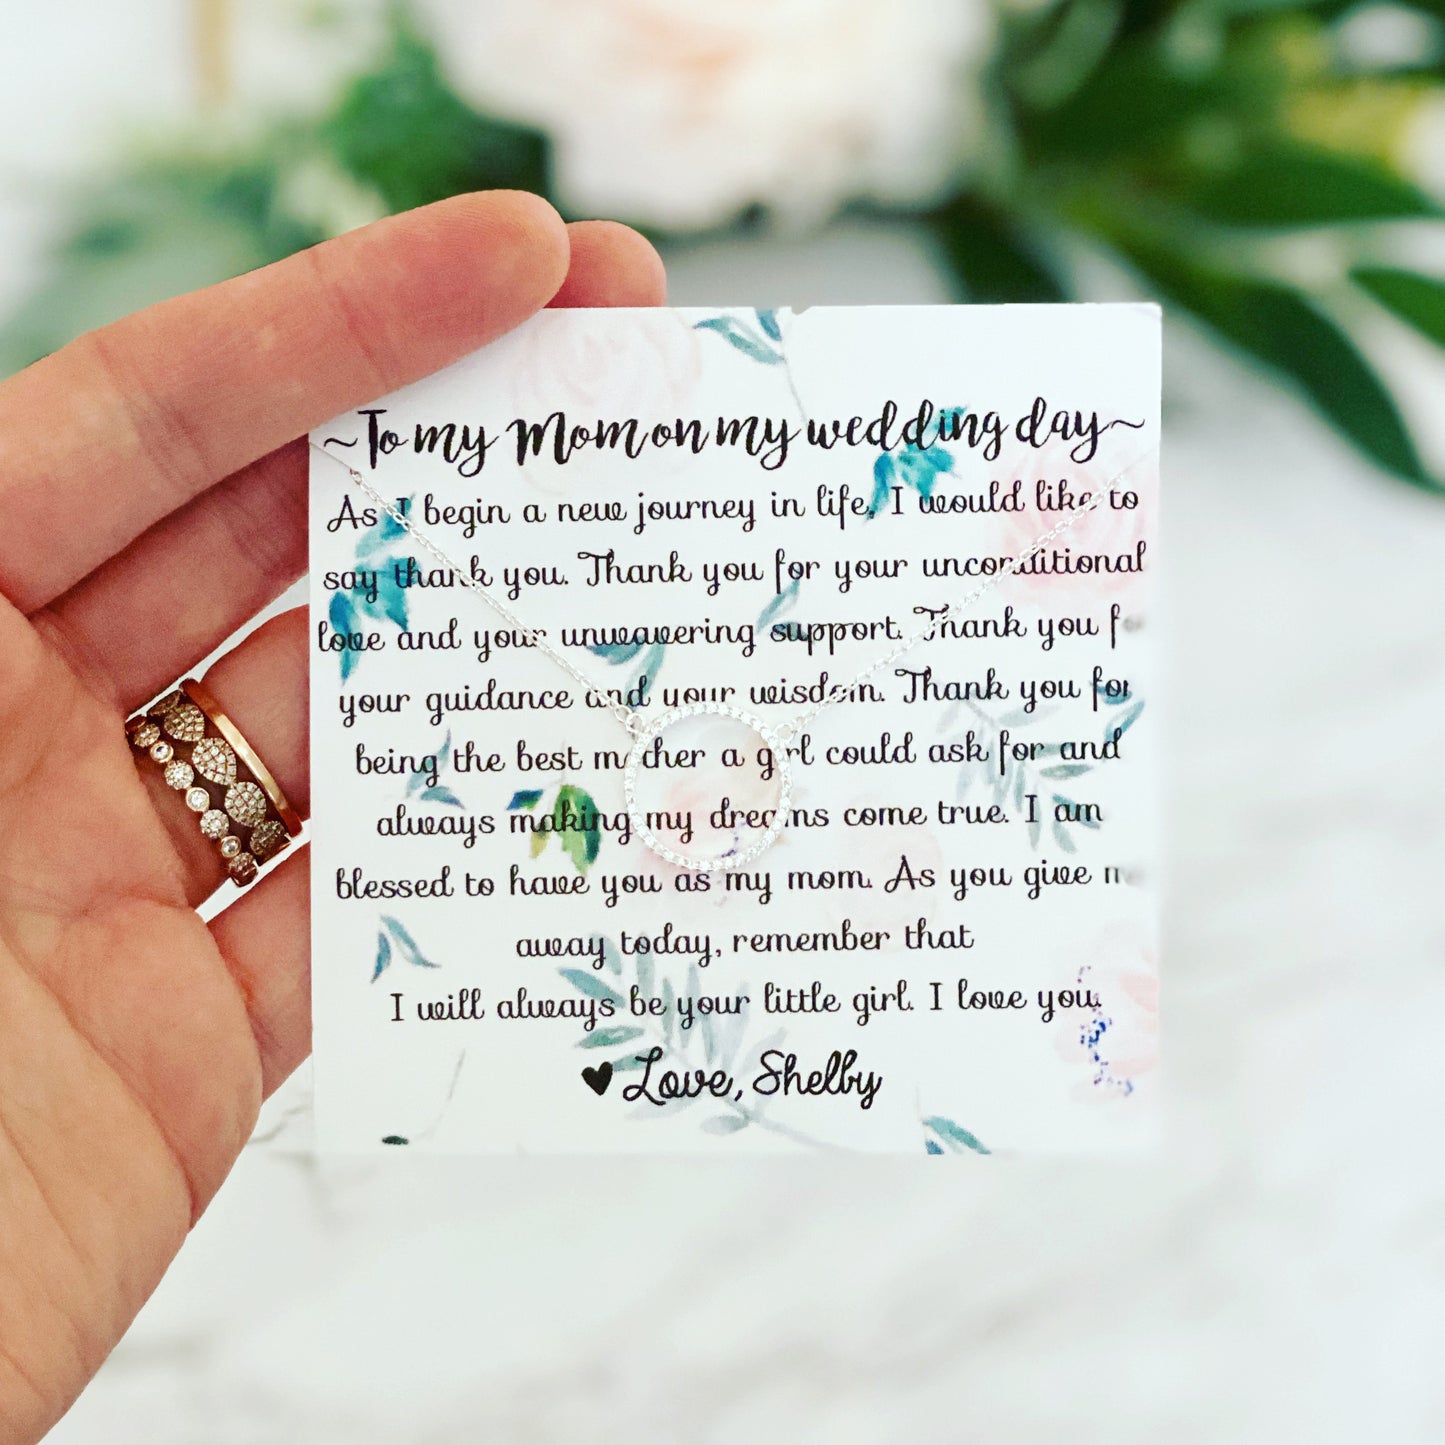 ~To my Mom on my wedding day~
As I begin a new journey in life, I would like to
say thank you. Thank you for your unconditional
love and your unwavering support. Thank you f
your guidance and your wisdom. Thank you for
being the best mother a girl could ask for and
always making my dreams come true. I am
blessed to have you as my mom. As you give m
away today, remember that
I will always be your little girl. I love you.
♥ Love, Shelby